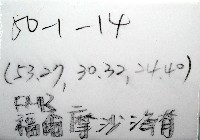 50-1-14
(53.27, 30.32, 24.40)
福爾摩沙海脊